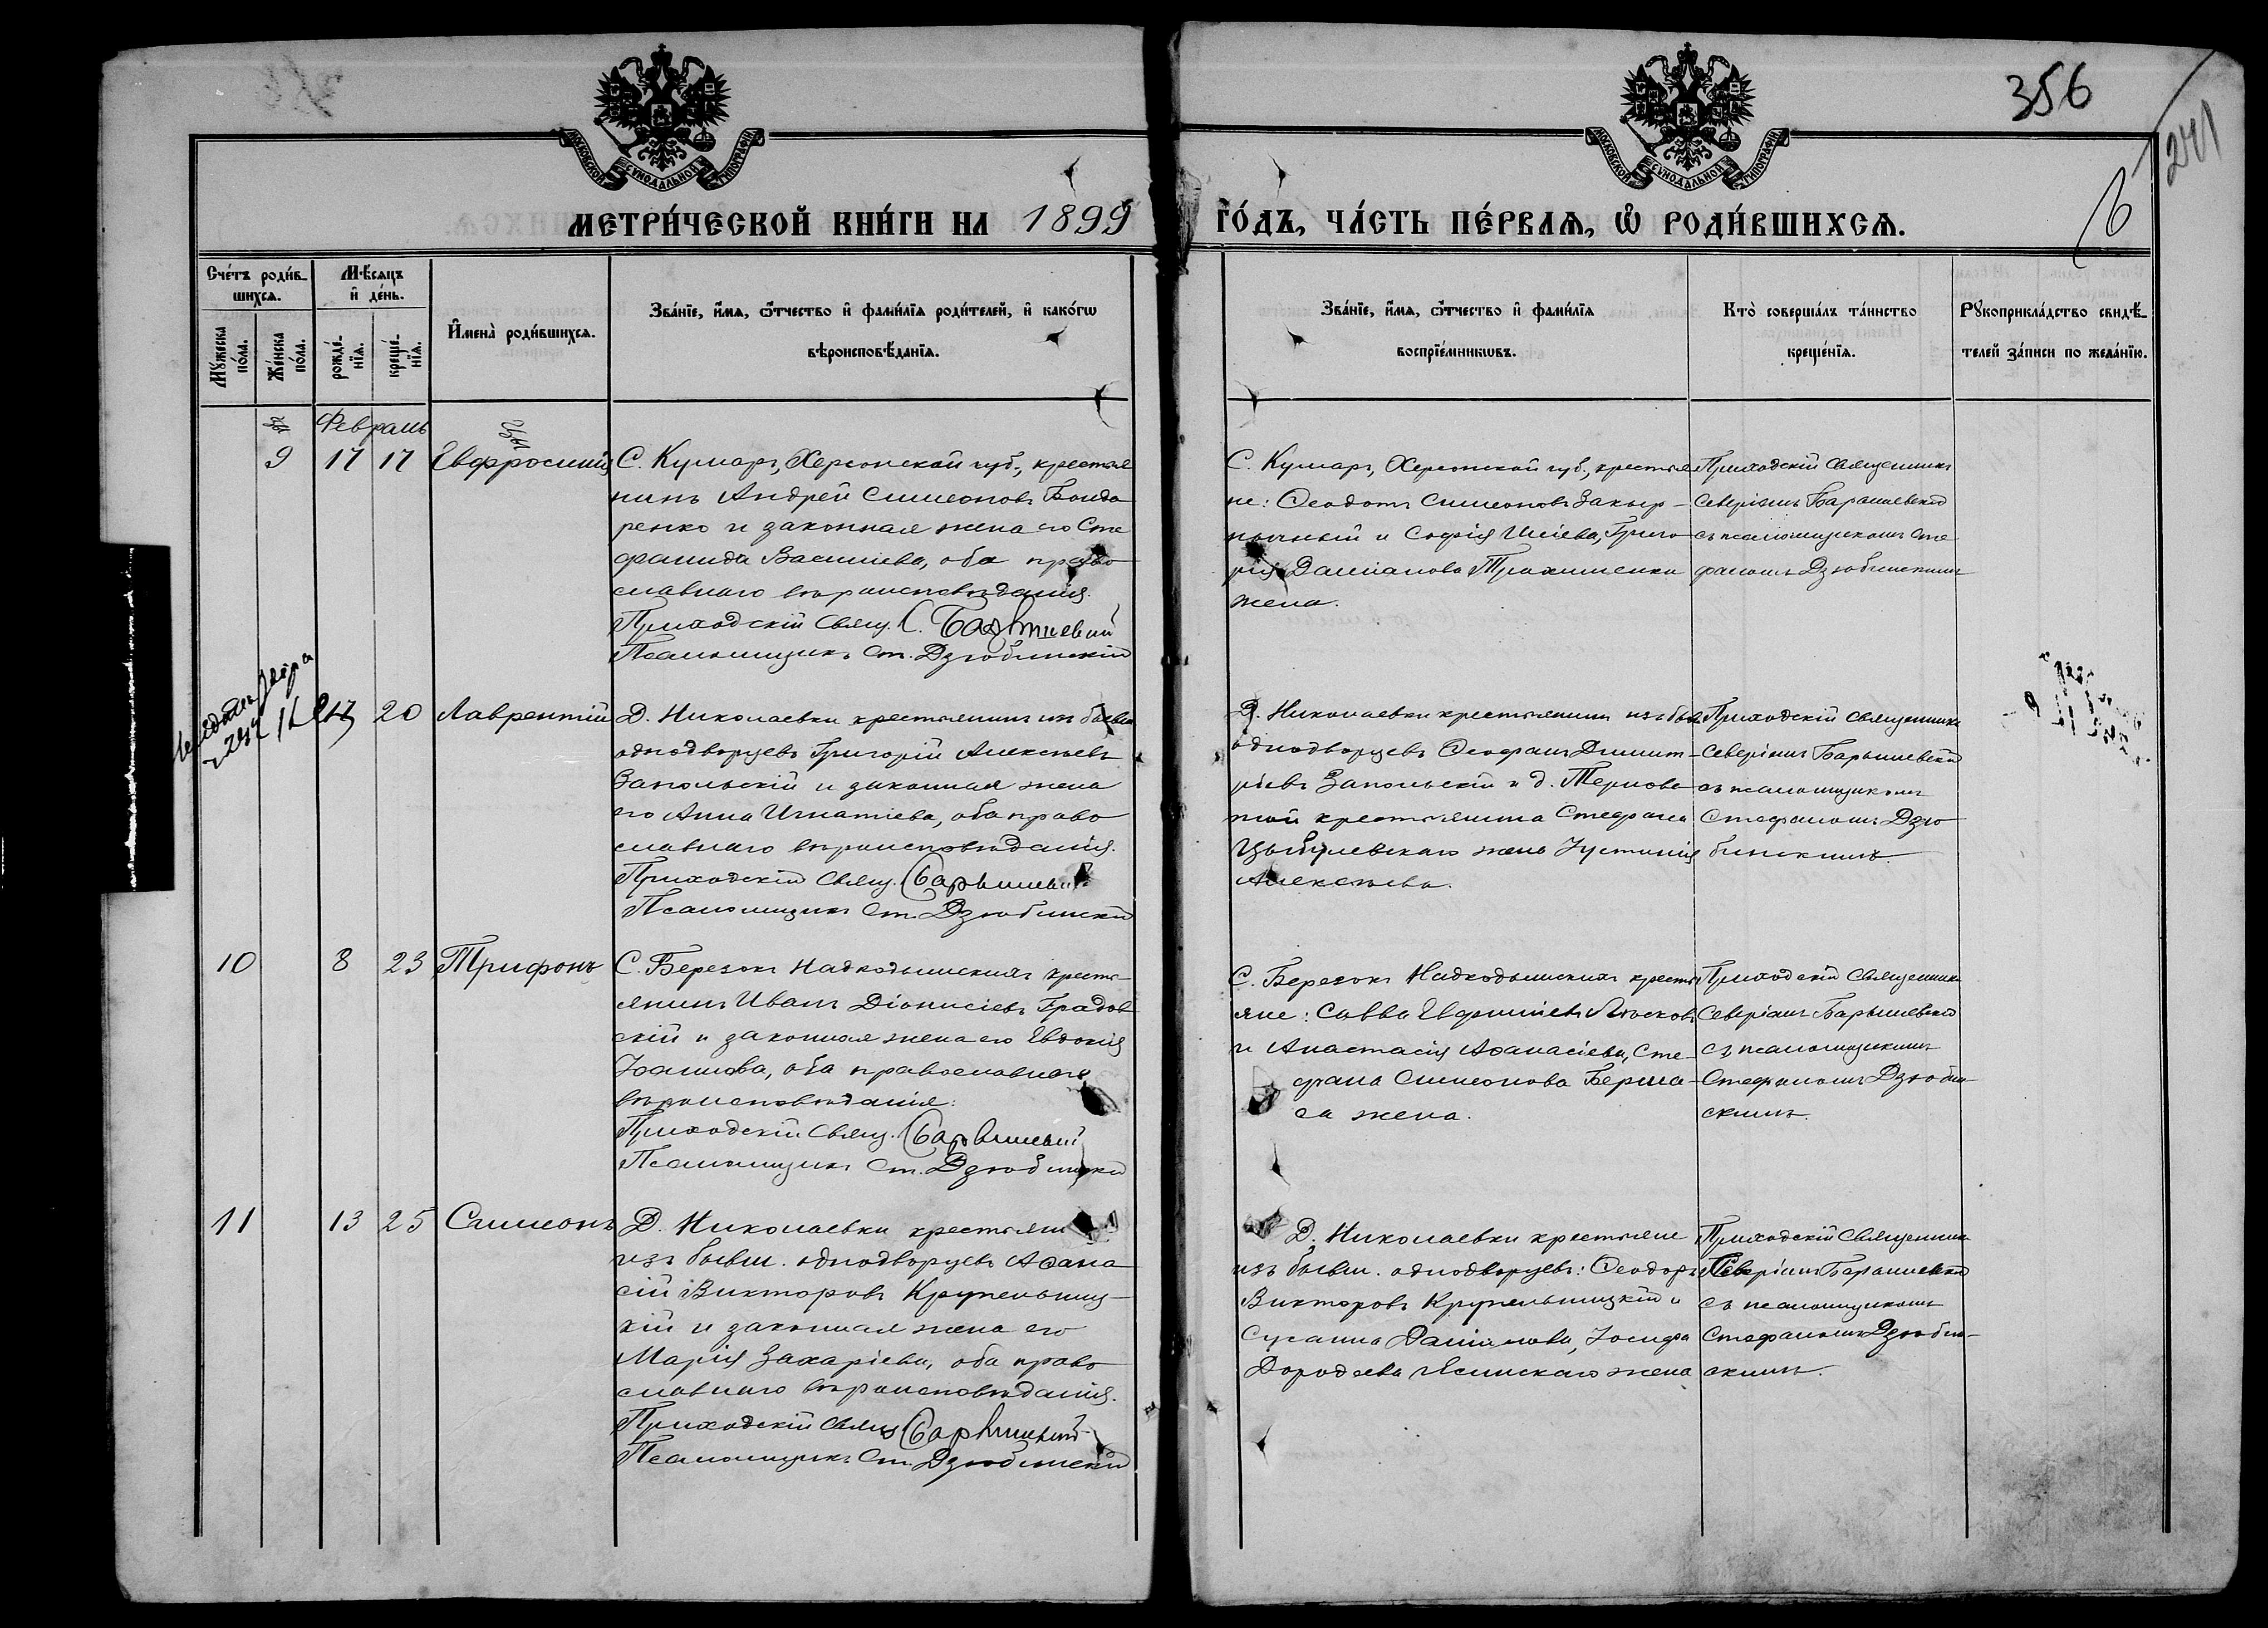 356
241
6
МОСКОВСКОЙ СѴНОДАЛЬНОЙ ТИПОГРАФІИ
МОСКОВСКОЙ СѴНОДАЛЬНОЙ ТИПОГРАФІИ
МЕТРИ́ЧЕСКОЙ КНИ́ГИ НА 1899
ГО́ДЪ, ЧА́СТЬ ПЕ́РВАѦ, Ѡ҆ РОДИ́ВШИХСѦ.
Счéтъ роди́в-
шихсѧ.
Мꙋ́жеска
по́ла.
Же́нска
по́ла.
Мѣ́сяцъ
и҆ де́нь.
рожде́-
нїѧ.
креще́-
нїѧ.
И҆мена̀ роди́вшихсѧ.
Зва́нїе, и҆́мѧ, ѻ҆́тчество и҆ фами́лїѧ роди́телей, и҆ како́гѡ
вѣроисповѣ́данїѧ.
Зва́нїе, и҆́мѧ, ѻ҆́тчество и҆ фами́лїѧ
воспрїе́мникѡвъ.
Кто̀ соверша́лъ та́инство
креще́нїѧ.
Рꙋкоприкла́дство свидѣ́-
телей за́писи по жела́нїю.
Февраль
9 17 17 Евфросинія
С. Кумаръ, Херсонской губ., крестья
нинъ Андрей Симеоновъ Бонда
ренко и законная жена его Сте
фанида Васильева, оба право
славнаго вѣроисповѣданія.
Приходскій Свящ. С. Барышевскій
Псаломщикъ Ст. Дзюбинскій
С. Кумаръ, Херсонской губ., крестья
не: Ѳеодотъ Симеоновъ Закыр-
ничный и Софія Илієва, Григо
рія Даміанова Трохименки
жена.
Приходскій Священникъ
Северіанъ Барышевскій
съ псаломщикомъ Сте
фаномъ Дзюбинскимъ
20 Лаврентій
Д. Николаевки крестьянинъ изъ бывш
однодворцевъ Григорій Алексѣевъ
Запольскій и законная жена
его Анна Игнатіева, оба право
славнаго вѣроисповѣданія.
Приходскій Свящ. С. Барышевскій
Псаломщикъ Ст. Дзюбинскій
Д. Николаевки крестьянинъ изъ быв
однодворцевъ Ѳеофанъ Димит-
ріевъ Запольскій и д. Терново
той крестьянина Стефана
Цыбулевскаго жена Іустинія
Алексѣева.
Приходскій Священникъ
Северіанъ Барышевскій
съ псаломщикомъ
Стефаномъ Дзю
бинскимъ
10 8 23 Трифонъ
С. Березокъ Надкодымскихъ кресть-
янинъ Иванъ Діонисіевъ Градов
скій и законная жена его Евдокія
Іоаннова, оба православнаго
вѣроисповѣданія.
Приходскій Свящ. С. Барышевскій
Псаломщикъ Ст. Дзюбинскій
С. Березокъ Надкодымскихъ кресть
яне: Савва Евфиміевъ
и Анастасія Аѳанасіева, Сте-
фана Симеонова
са жена.
Приходскій Священникъ
Северіанъ Барышевскій
съ псаломщикомъ
Стефаномъ Дзюбин-
скимъ.
11 13 25 Симеонъ
Д. Николаевки крестьянинъ
изъ бывш. однодворцевъ Аѳана
сій Викторовъ Крупельниц-
кій и законная жена его
Марія Захаріева, оба право
славнаго вѣроисповѣданія.
Приходскій Свящ. С. Барышевскій
Псаломщикъ Ст. Дзюбинскій
Д. Николаевки крестьяне
изъ бывш. однодворцевъ: Ѳеодоръ
Викторовъ Крупельницкій и
Сусанна Даніилова, Іосифа
Дороѳеева Ясинскаго жена
Приходскій Священникъ
Северіанъ Барышевскій
съ псаломщикомъ
Стефаномъ Дзюбин-
скимъ.